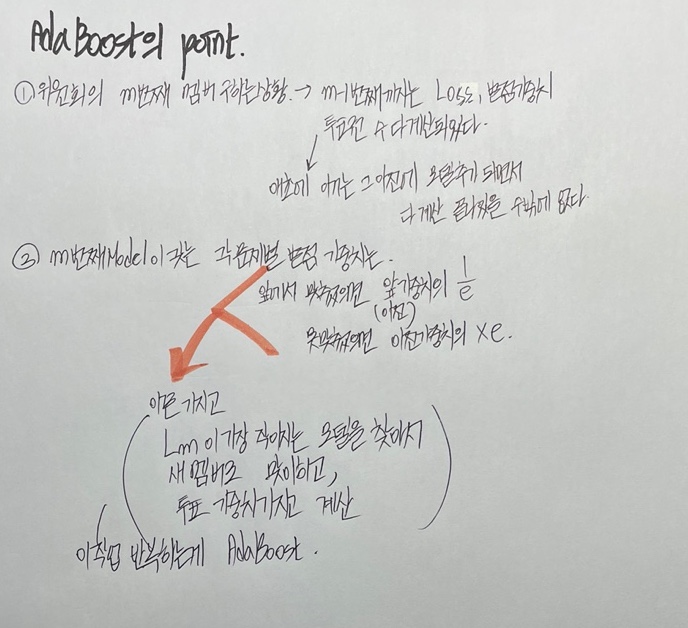 AdaBoost의 point.
① 위원회의 m번째 멤버 구하는상황. → m-1번째까지는 Loss, 변점가중치
투표권 수 다계산되있다.
애초에 야기는 그이전에 모델추가 되면서
다계산 끝나있을 수밖에 없다.
② m번째Model이 갖는 각문제별 변점 가중치는.
앞에서 맞췄으면 앞가중치의 1/e
(이전)
못맞췄으면 이전가중치의 xe.
가지고
Lm이 가장 작아지는 모델을 찾아서
새멤버로 맞이하고,
투표 가중치가지고 계산
이작업 반복하는게 AdaBoost.